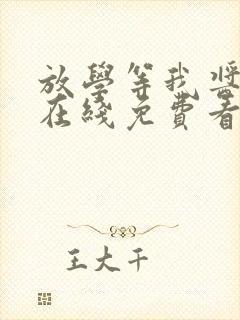 放學等我獎
在綫免費看
王大千